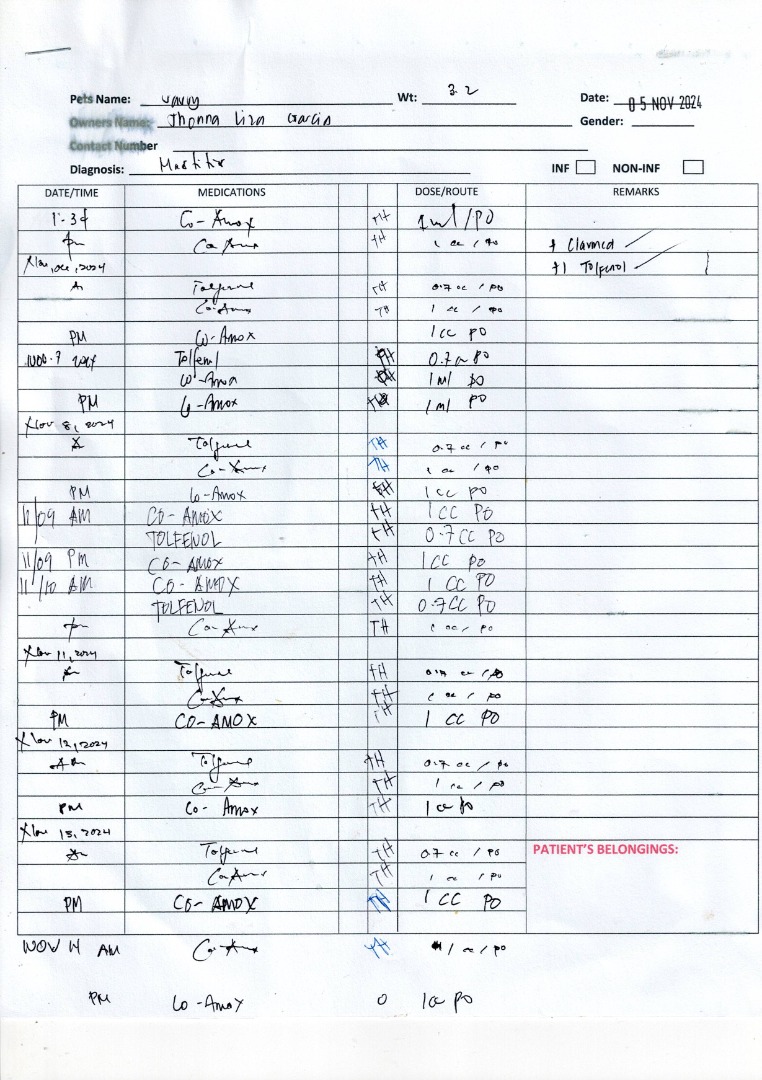 Pets Name: Wt: 3.2 Date: 05 NOV 2024
Owners Name: Jhonna Liza Garcia Gender:
Contact Number
Diagnosis: Mastitis INF NON-INF
DATE/TIME MEDICATIONS DOSE/ROUTE REMARKS
1:34 Co-Amox TH 1ml/PO
pm Co-Amox TH 1 cc / po + Clavmed
Nov 06, 2024 +1 Tolfenol
A Tolfenol TH 0.7 cc / po
Co-Amox TH 1 cc / po
PM Co-Amox 1cc po
NOV. 7 2024 Tolfenol TH 0.7cc po
Co-Amox TH 1ml po
PM Co-Amox TH 1ml po
Nov 8, 2024
Tolfenol TH 0.7 cc / po
Co-Amox TH 1 cc / po
PM Co-Amox TH 1cc po
11/09 AM CO-AMOX TH 1CC PO
TOLFENOL TH 0.7CC PO
11/09 PM CO-AMOX TH 1CC PO
11/10 AM CO-AMOX TH 1 CC PO
TOLFENOL TH 0.7CC PO
pm Co-Amox TH 1 cc / po
Nov 11, 2024
Tolfenol TH 0.7 cc / po
Co-Amox TH 1 cc / po
PM CO-AMOX TH 1 CC PO
Nov 12, 2024
Am Tolfenol TH 0.7 cc / po
Co-Amox TH 1 cc / po
PM Co-Amox TH 1cc po
Nov 13, 2024
Tolfenol TH 0.7 cc / po PATIENT'S BELONGINGS:
Co-Amox TH 1 cc / po
PM CO-AMOX TH 1 CC PO
NOV 14 AM Co-Amox TH 1 cc / po
PM Co-Amox 0 1cc po